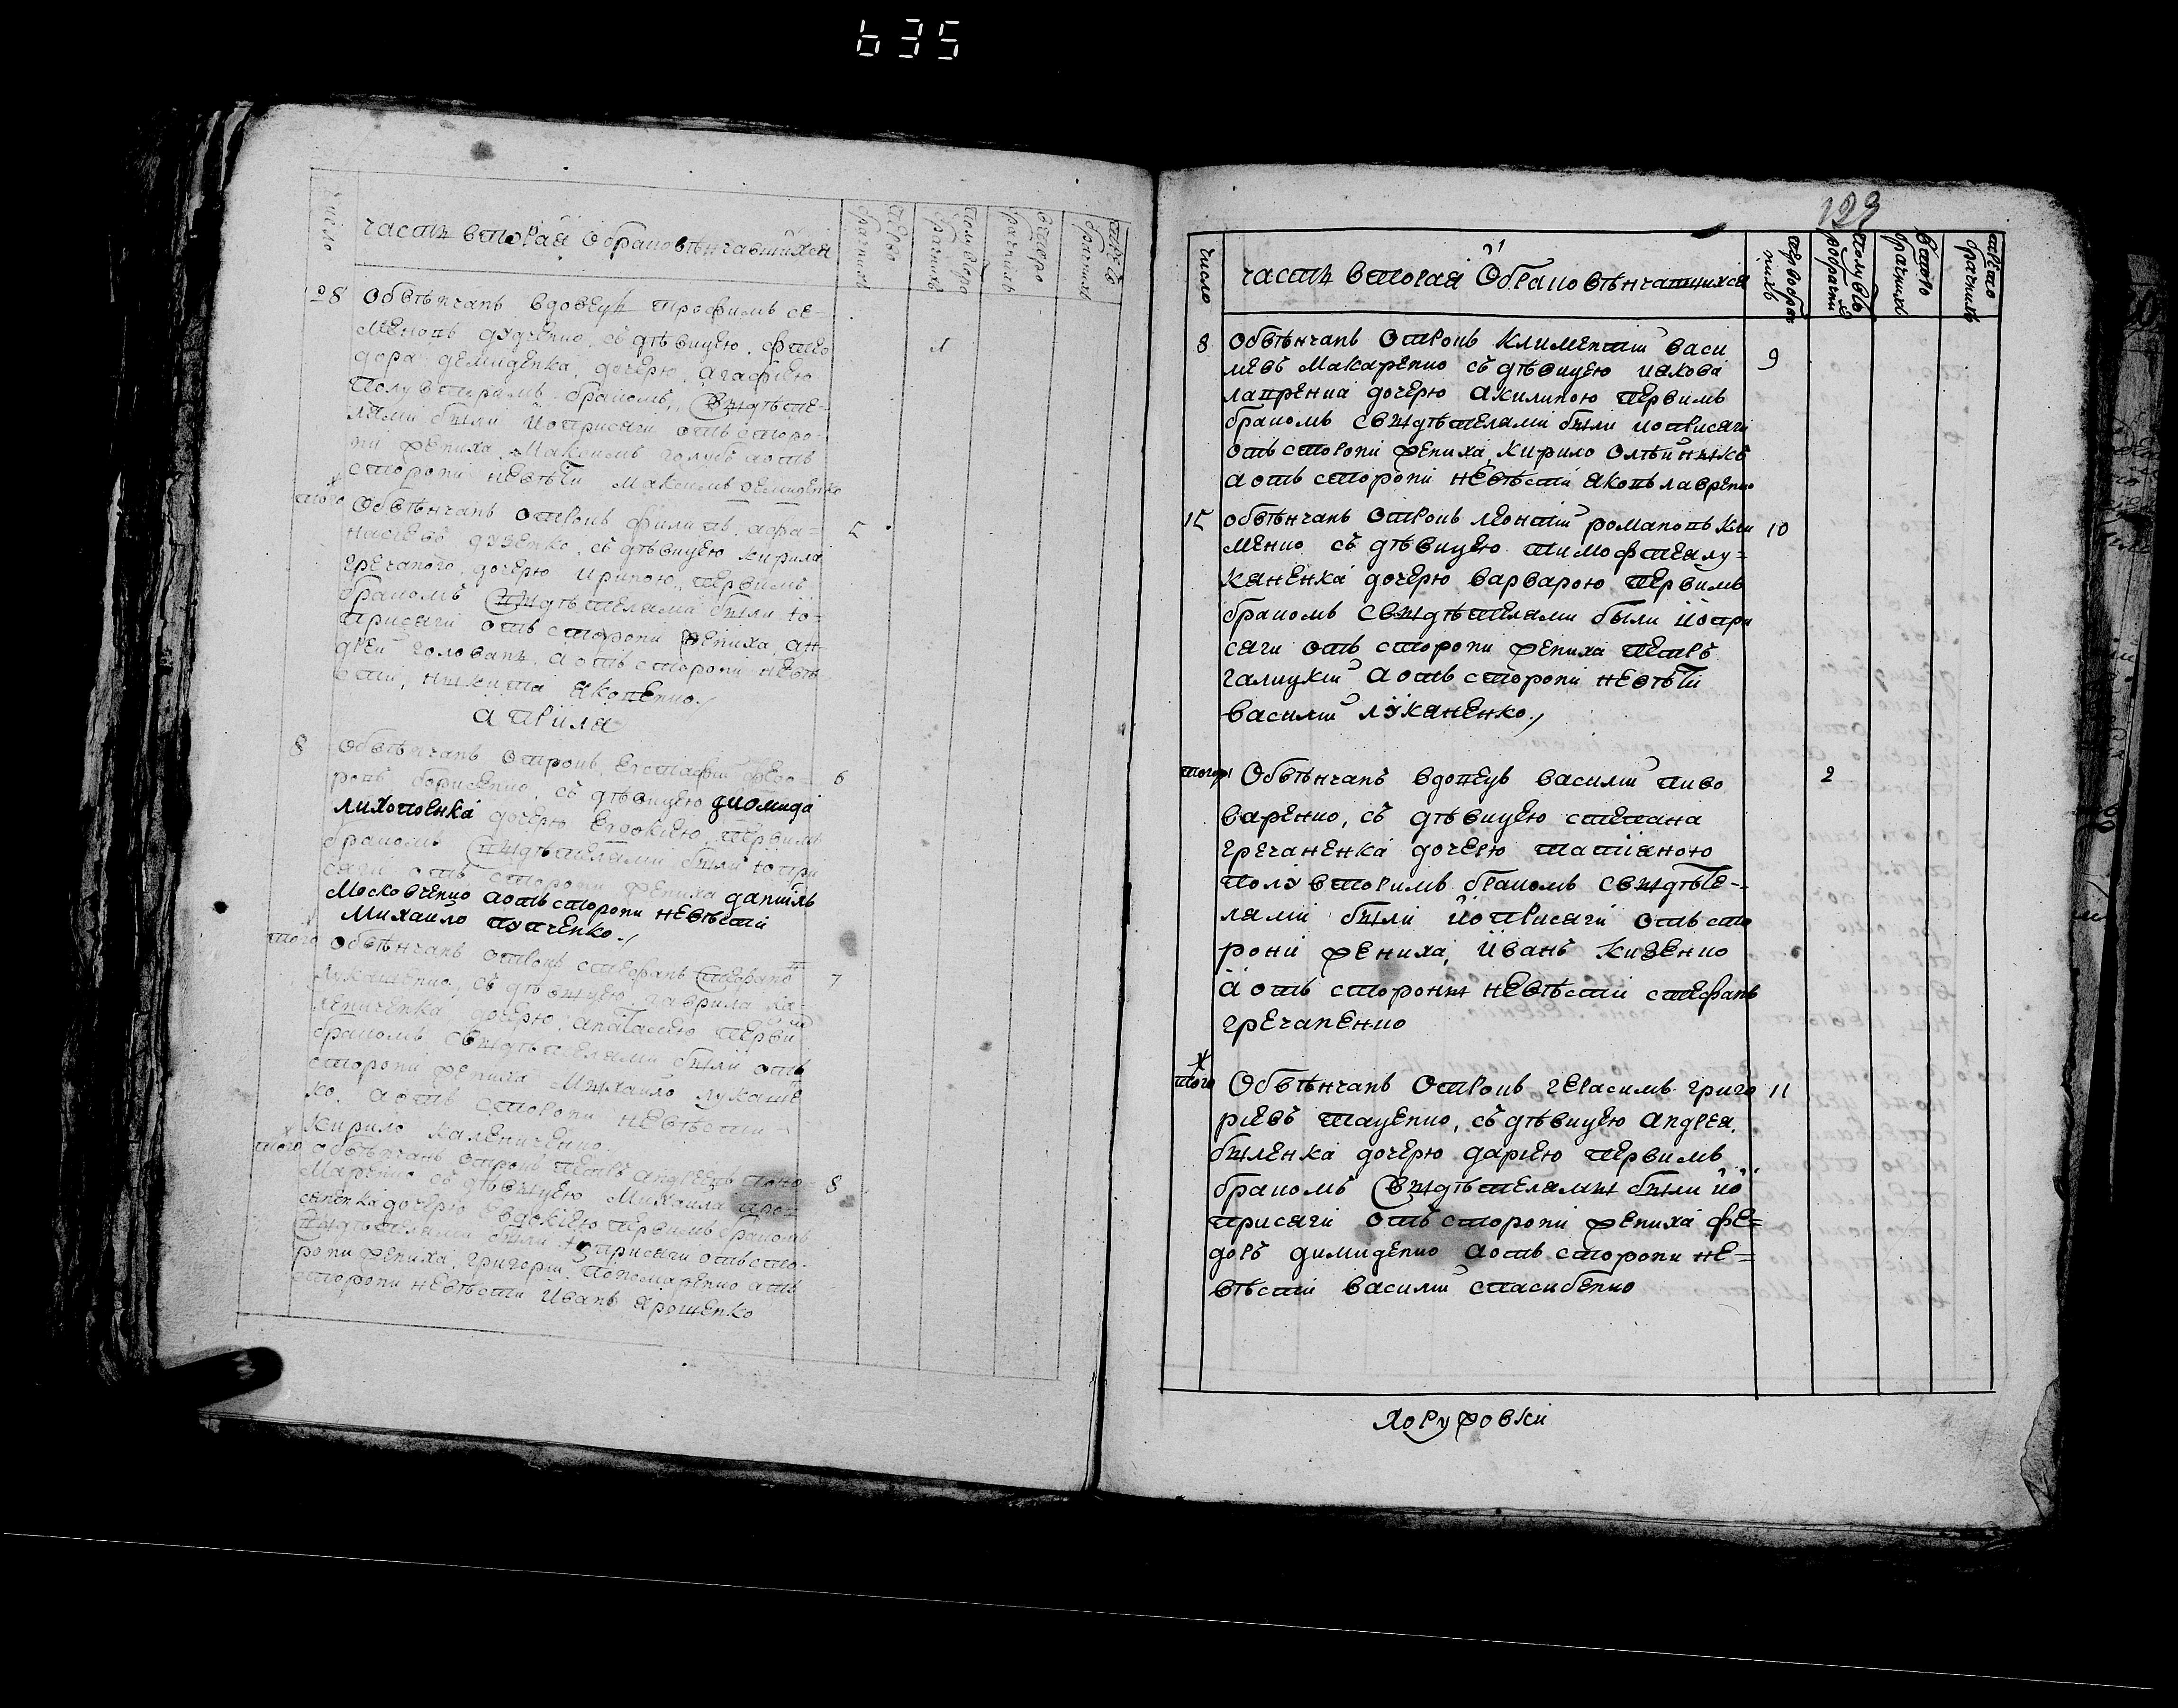 635
число
часть вторая о брако вѣнчавшихся
перво брачнихъ
полувторо брачнихъ
второ брачнихъ
трето брачнихъ
28 Обвѣнчанъ вдовецъ трофимъ се-
меновъ дудченко, съ дѣвицею, фтео
дора демиденка, дочерю, агафиею
полувторимъ бракомъ, свыдѣте-
лями были йоприсяги отъ сторо-
ни жениха, максимъ голубъ аотъ
сторони невѣсти максимъ демиденко
1
того ж Обвѣнчанъ отрокъ филипъ, афа-
насиевъ дузенко, съ дѣвицею кирила
гречаного, дочерю ириною, первимъ,
бракомъ свыдѣтелями были ю-
присяги отъ сторони жениха, ан-
дрей голованъ, аотъ сторони невѣ
сти, ныкита яковенко
5
априля
8 Обвѣнчанъ отрокъ, Евстафий федо-
ровъ борисенко, съ дѣвицею диомида
лихопоенка дочерю Евдокиею, первимъ
бракомъ свыдѣтелями были юпри
сяги отъ сторони жениха данйилъ
Московченко аотъ сторони невѣсти
Михайло пупченко
6
того Обвѣнчанъ отрокъ стефанъ стефановъ
лукашенко, съ дѣвыцею, гаврила ка-
лениченка, дочерю, анастасиею перви
бракомъ свыдѣтелями были отъ
сторони жениха Мыхайло лукашен
ко, аотъ сторони невѣсти
кирило калениченко
7
того ж обвѣнчанъ отрокъ петръ андреевъ поно
маренко съ дѣвыцею Михаила яро-
шенка дочерю Евдокиею первимъ бракомъ
свыдѣтелями были юприсяги отъ сто-
рони жениха, григорий пономаренко аотъ
сторони невѣсти Иванъ ярошенко
8
129
число
часть вторая О брако вѣнчавшихся
первобрач нихъ
полувто робрачних
второ брачнихъ
трето брачнихъ
8 Обвѣнчанъ отрокъ климентий васи
левъ Макаренко съ дѣвицею иякова
лавренка дочерю акилиною первимъ
бракомъ свыдѣтелями были иоприсяги
отъ сторони жениха, кирило олѣйныкъ
аотъ сторони невѣсти яковъ лавренко
9
15 обвѣнчанъ отрокъ леонтий романовъ кли
менко съ дѣвицею тимофтея лу=
кяненка дочерю варварою, первимъ
бракомъ свыдѣтелями были йопри
сяги отъ сторони жениха петръ
галицкий аотъ сторони невѣсти
василий лукяненко
10
тогож Обвѣнчанъ вдовецъ василий пиво
варенко, съ дѣвицею стемана
гречаненка дочерю татияною
полувторимъ бракомъ свыдѣте-
лями были йоприсяги отъ сто
рони жениха, йванъ кизенко
а отъ стороны невѣсти стефанъ
гречаненко
2
того ж Обвѣнчанъ отрокъ герасимъ григо
риевъ таценко, съ дѣвицею андрея,
быленка дочерю дариею первимъ
бракомъ свыдѣтелямы были йо
присяги отъ сторони жениха фе=
доръ димиденко аотъ сторони не=
вѣсти василий спасибенко
11
хоружовки